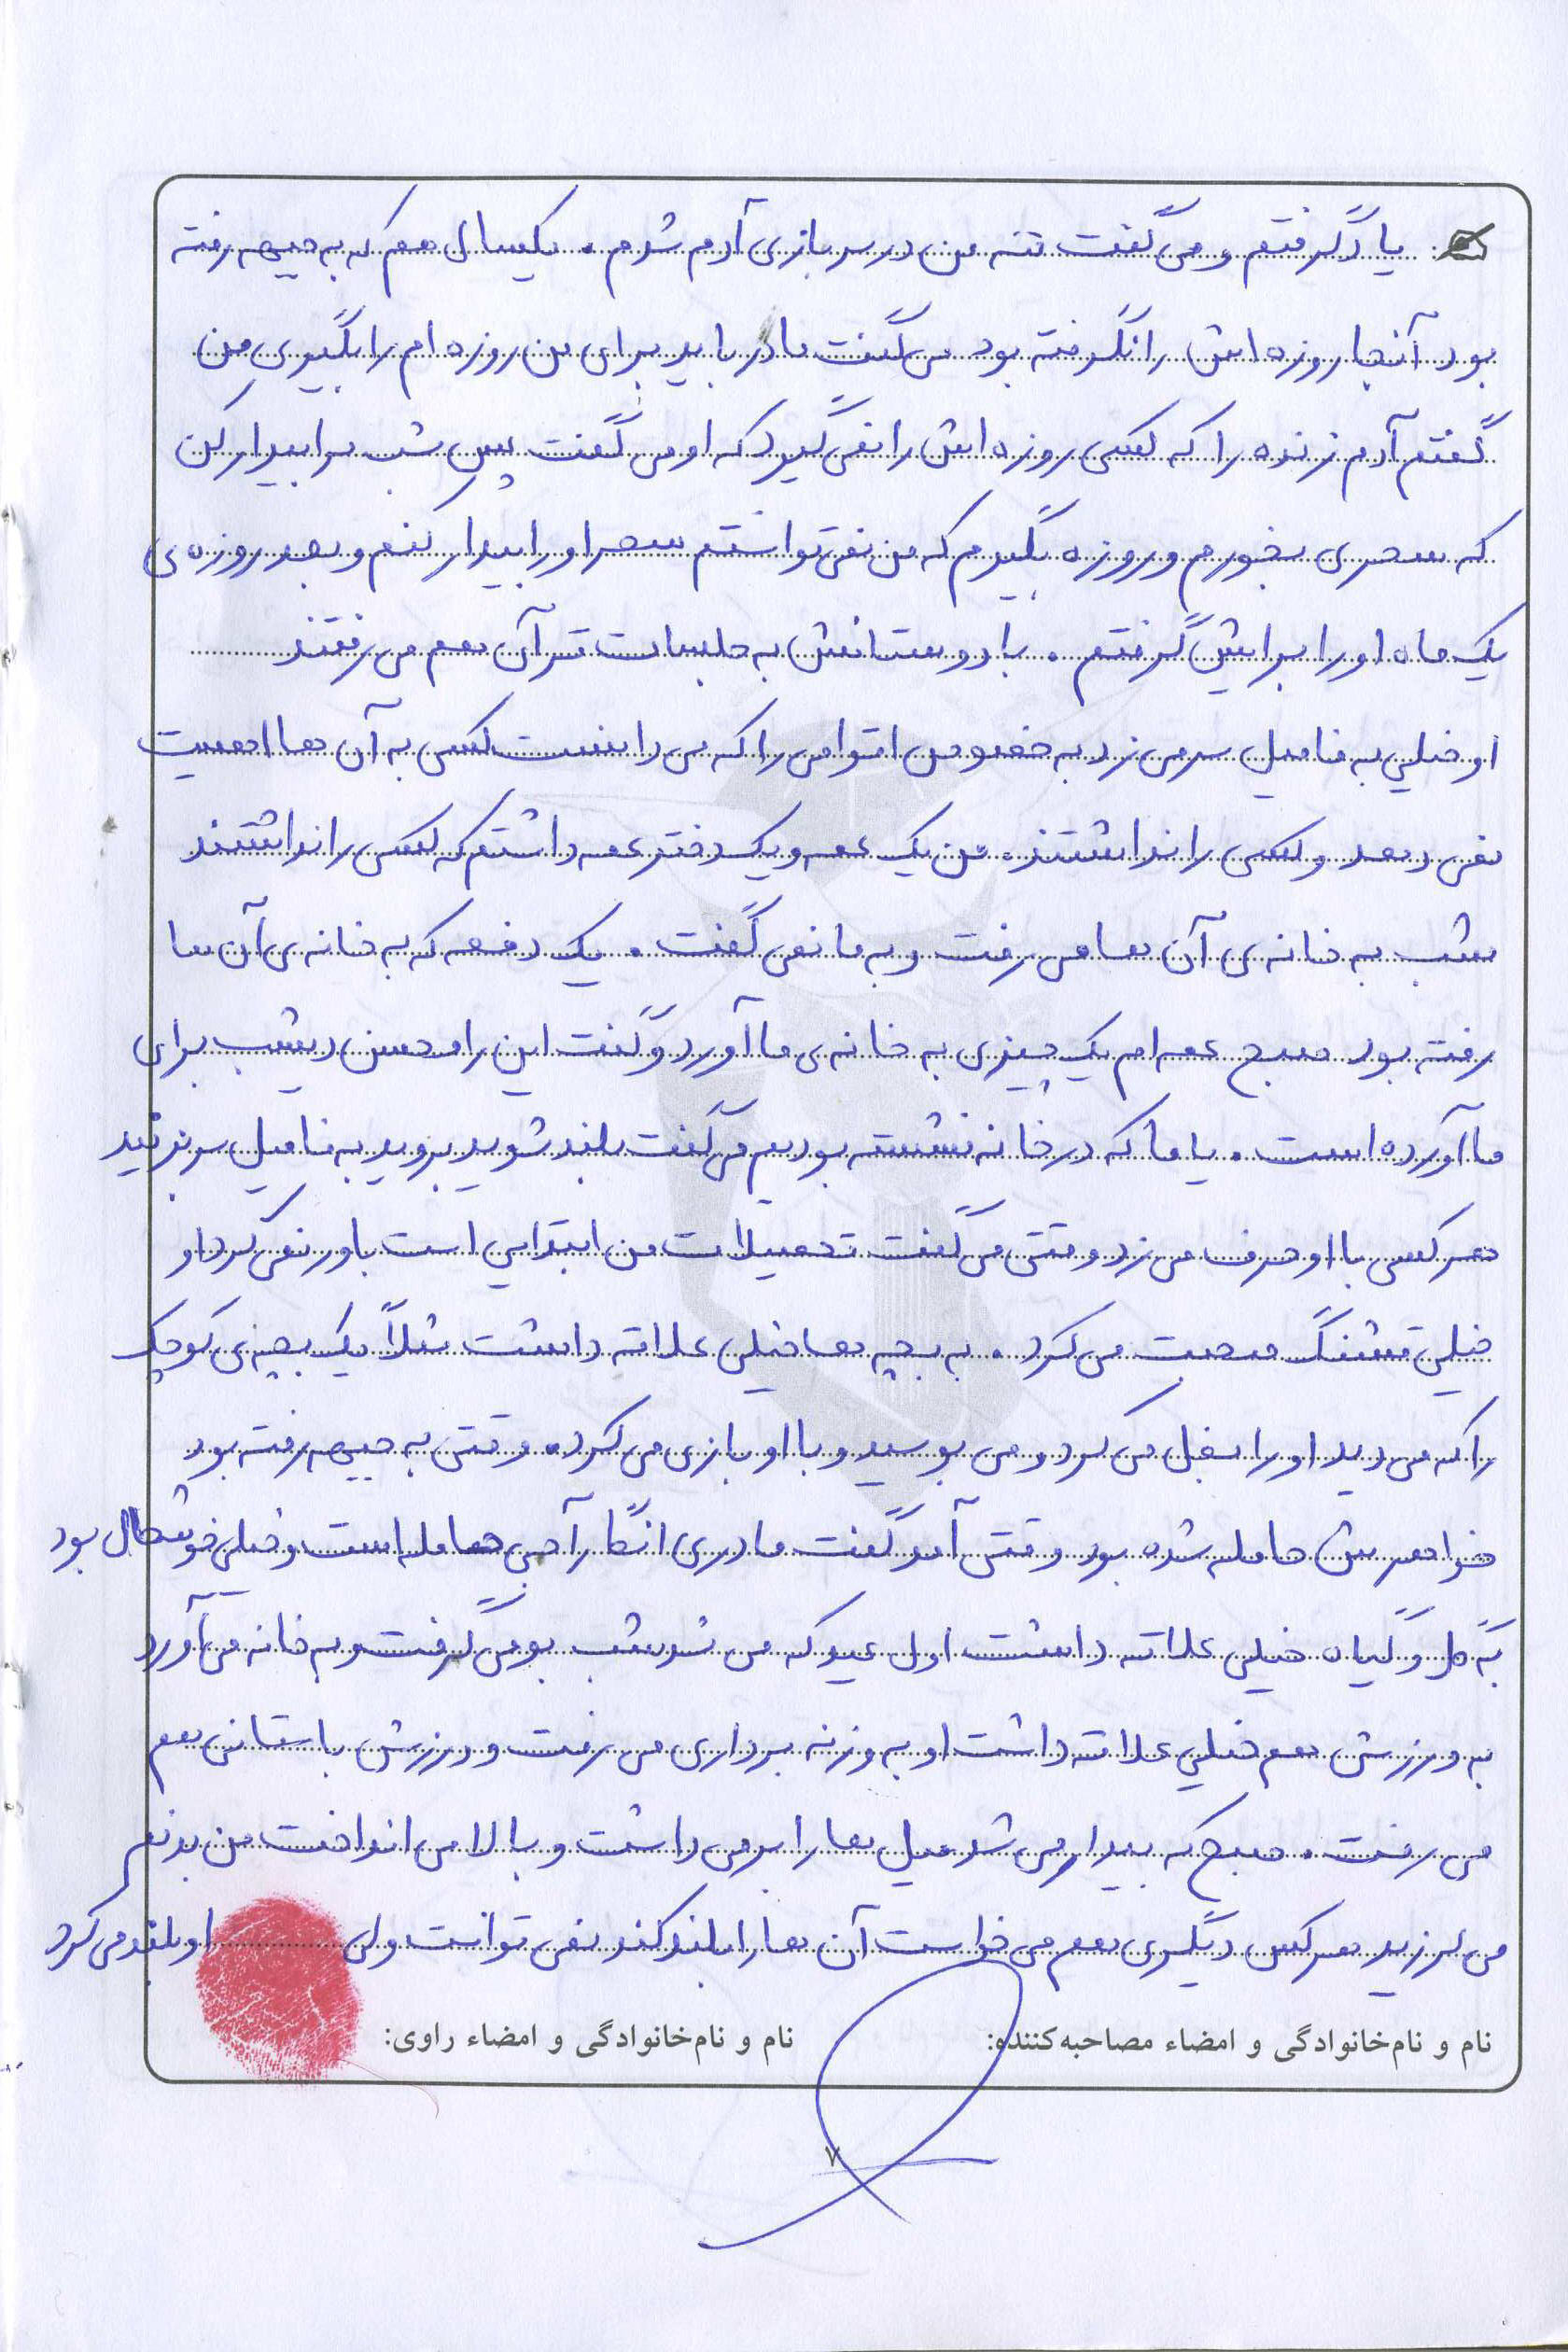 یاد گرفتم و می گفت ننه من در سربازی آدم شدم . یکسال هم که به جبهه رفته
بود آنجا روزه اش را نگرفته بود می گفت مادر باید برای من روزه ام را بگیری من
گفتم آدم زنده را که کسی روزه اش را نمی گیرد که او می گفت پس شب مرا بیدار کن
که سحری بخورم و روزه بگیرم که من نمی توانستم سحر او را بیدار کنم و بعد روزه ی
یک ماه او را برایش گرفتم . با دوستانش به جلسات قرآن هم می رفتند
او خیلی به فامیل سر می زد به خصوص اقوامی را که می دانست کسی به آن ها اهمیت
نمی دهد و کسی را نداشتند . من یک عمه و یک دختر عمه داشتم که کسی را نداشتند
شب به خانه ی آن ها می رفت و به ما نمی گفت . یک دفعه که به خانه ی آن ها
رفته بود صبح عمه ام یک چیزی به خانه ی ما آورد و گفت این را محسن دیشب برای
ما آورده است . یا ما که در خانه نشسته بودیم می گفت بلند شوید بروید به فامیل سر بزنید
هر کسی با او حرف می زد وقتی می گفت تحصیلات من ابتدایی است باور نمی کرد او
خیلی قشنگ صحبت می کرد . به بچه ها خیلی علاقه داشت مثلاً یک بچه ی کوچک
را که می دید او را بغل می کرد و می بوسید و با او بازی می کرد . وقتی به جبهه رفته بود
خواهرش حامله شده بود وقتی آمد گفت مادری انگار آجی حامله است و خیلی خوشحال بود
به گل و گیاه خیلی علاقه داشت اول عید که می شد شب بو می گرفت و به خانه می آورد
به ورزش هم خیلی علاقه داشت او به وزنه برداری می رفت و ورزش باستانی هم
می رفت . صبح که بیدار می شد میل ها را بر می داشت و بالا می انداخت من بدنم
می لرزید هر کس دیگری هم می خواست آن ها را بلند کند نمی توانست ولی او بلند می کرد
نام و نام‌خانوادگی و امضاء مصاحبه‌کننده: نام و نام‌خانوادگی و امضاء راوی:
۷